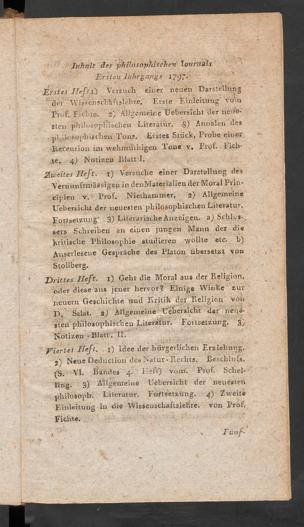 Inhalt des philosophischen Journals
Ersten Jahrgangs 1797.
Erstes Heft. 1) Versuch einer neuen Darstellung
der Wissenschaftslehre. Erste Einleitung vom
Prof. Fichte. 2) Allgemeine Uebersicht der neue-
sten philosophischen Literatur. 3) Annalen des
philosophischen Tons. Erstes Stück, Probe einer
Recension im wehmüthigen Tone v. Prof. Fich-
te. 4) Notizen Blatt I.
Zweites Heft. 1) Versuche einer Darstellung des
Vernunftmässigen in den Materialien der Moral Prin-
cipien v. Prof. Niethammer. 2) Allgemeine
Uebersicht der neuesten philosophischen Literatur.
Fortsetzung 3) Literarische Anzeigen. a) Schlos-
sers Schreiben an einen jungen Mann der die
kritische Philosophie studieren wollte etc. b)
Auserlesene Gespräche des Platon übersetzt von
Stollberg.
Drittes Heft. 1) Geht die Moral aus der Religion,
oder diese aus jener hervor? Einige Winke zur
neuern Geschichte und Kritik der Religion von
D. Salat. 2) Allgemeine Uebersicht der neue-
sten philosophischen Literatur. Fortsetzung. 3)
Notizen-Blatt. II.
Viertes Heft. 1) Idee der bürgerlichen Erziehung.
2) Neue Deduction des Natur-Rechts. Beschluss.
(S. VI. Bandes 4. Heft) vom. Prof. Schel-
ling. 3) Allgemeine Uebersicht der neuesten
philosoph. Literatur. Fortsetzung. 4) Zweite
Einleitung in die Wissenschaftslehre. von Prof.
Fichte.
Fünf-